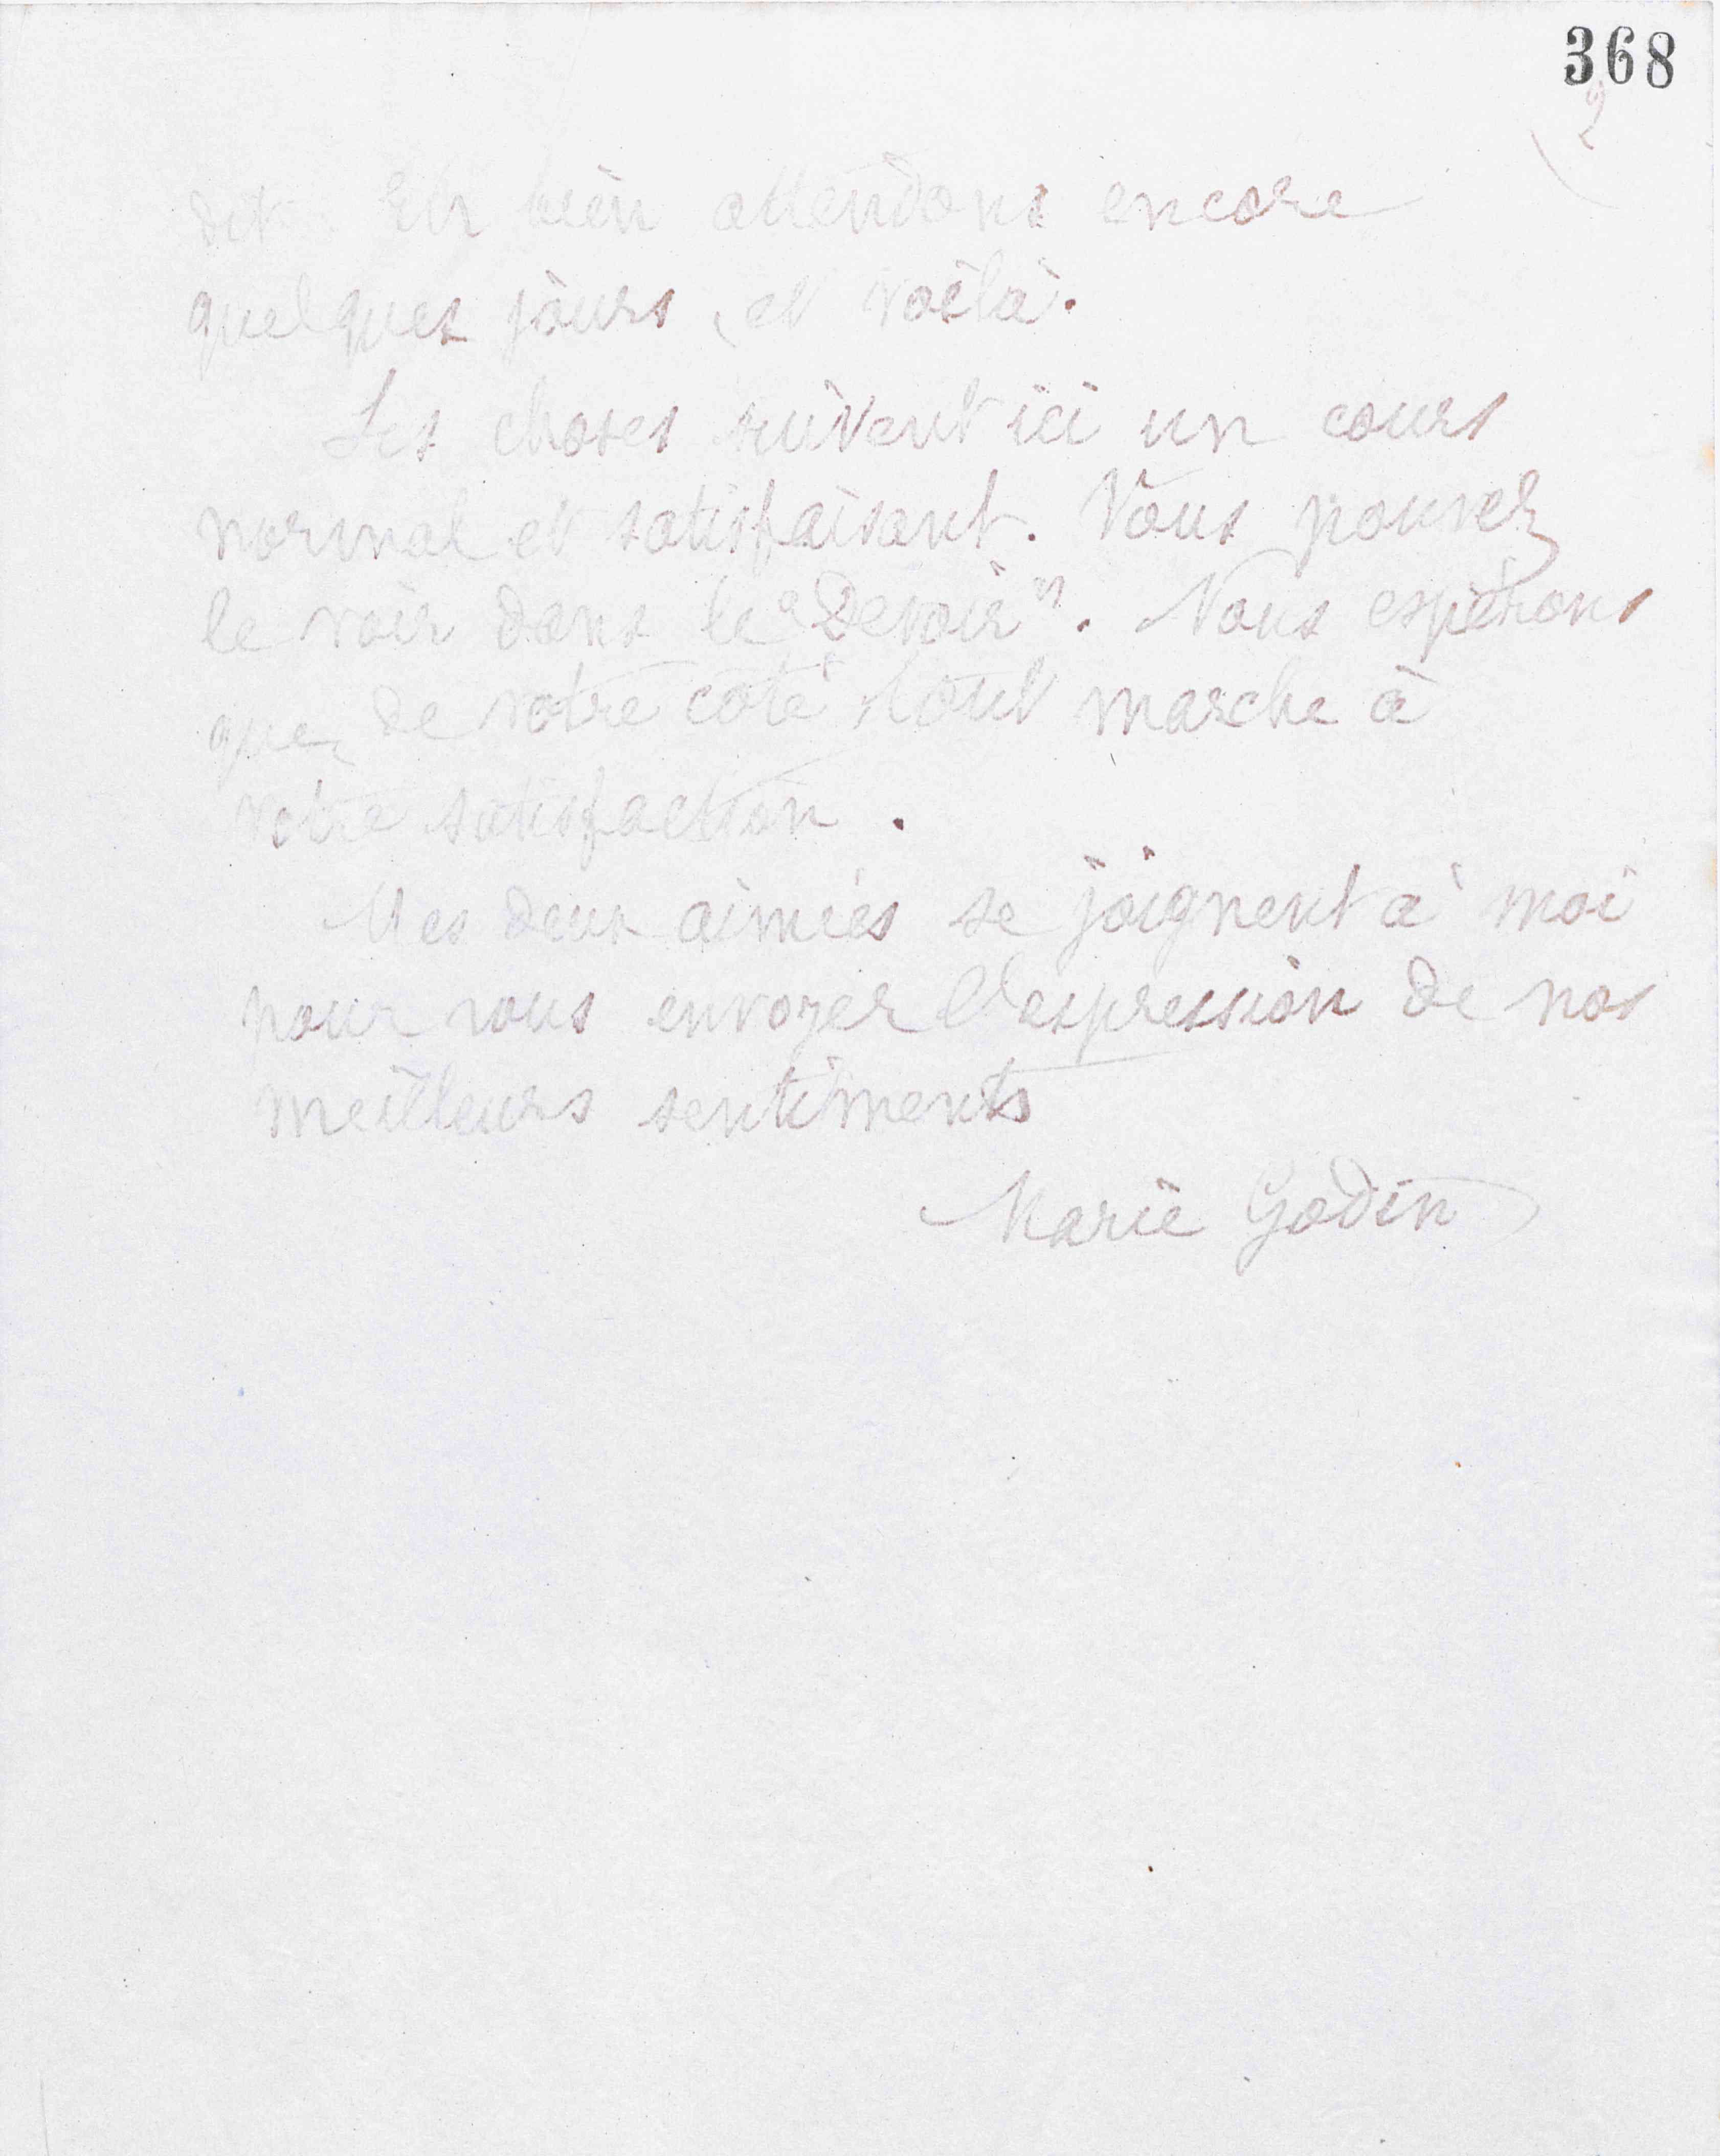 368
2
dit. Eh bien attendons encore
quelques jours, et voilà.
Les choses suivent ici un cours
normal et satisfaisant. Vous pouvez
le voir dans le "Devoir". Nous espérons
que, de votre côté tout marche à
votre satisfaction.
Mes deux aimées se joignent à moi
pour vous envoyer l'expression de nos
meilleurs sentiments
Marie Godin